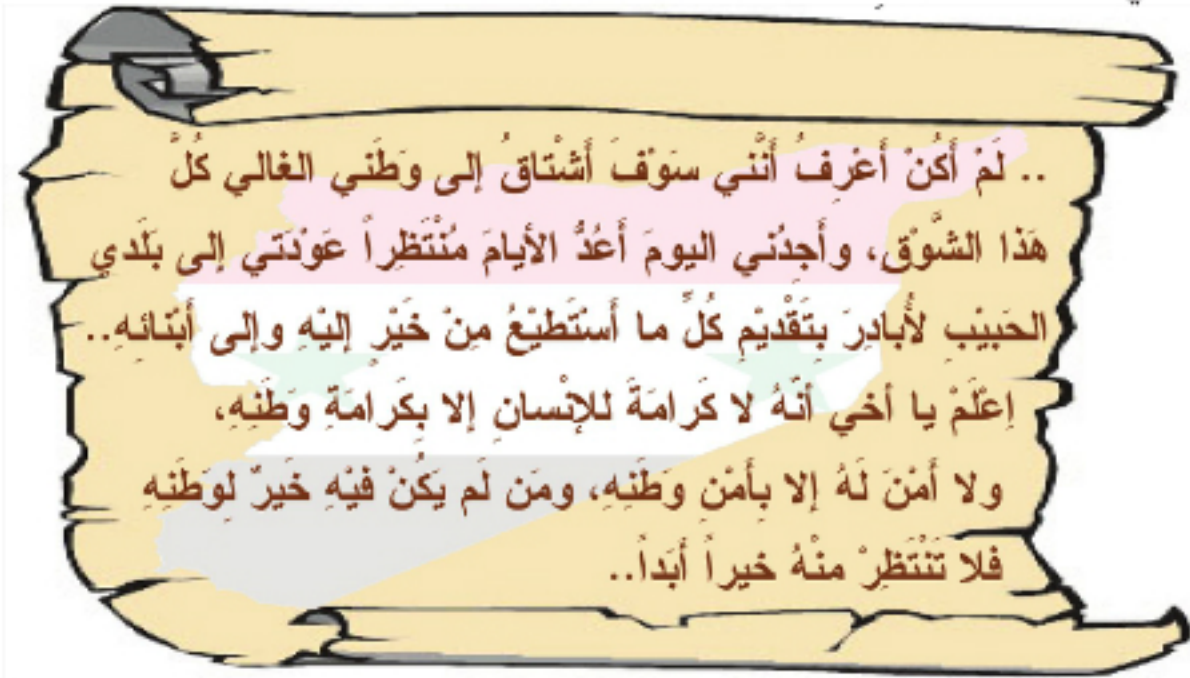 .. لَمْ أَكُنْ أَعْرِفُ أَنَّني سَوْفَ أَشْتاقُ إلى وَطَني الغالي كُلَّ
هَذا الشَّوْق، وأَجِدُني اليومَ أَعُدُّ الأيامَ مُنْتَظِراً عَوْدَتي إلى بَلَدي
الحَبيْبِ لأُبادِرَ بِتَقْديْمِ كُلِّ ما أَسْتَطيْعُ مِنْ خَيْرٍ إليْهِ وإلى أَبْنائهِ..
اِعْلَمْ يا أخي أنّهُ لا كَرامَةَ للإنْسانِ إلا بِكَرامَةِ وَطَنِهِ،
ولا أَمْنَ لَهُ إلا بِأَمْنِ وَطَنِهِ، ومَن لَم يَكُنْ فيْهِ خَيرٌ لِوَطَنِهِ
فلا تَنْتَظِرْ منْهُ خيراً أَبَداً..